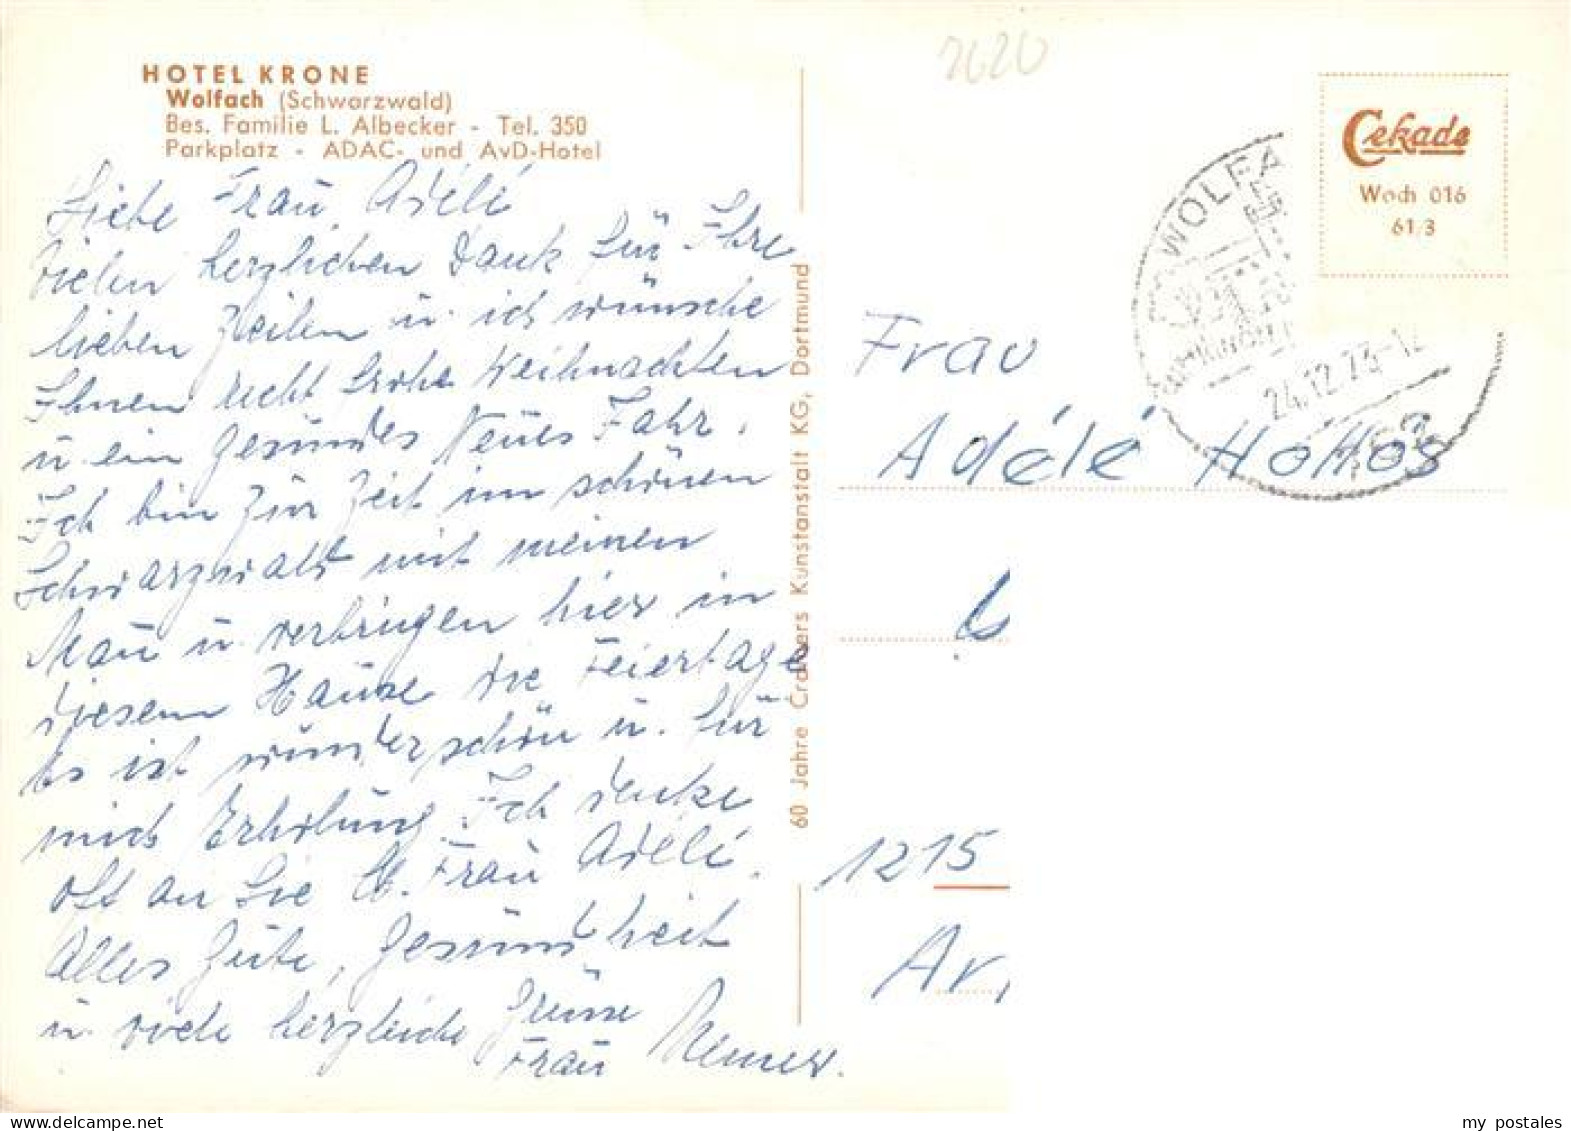 HOTEL KRONE
Wolfach (Schwarzwald)
Bes. Familie L. Albecker - Tel. 350
Parkplatz - ADAC- und AvD-Hotel
Liebe Frau Adélé
Vielen herzlichen Dank für Ihre
lieben Zeilen u. ich wünsche
Ihnen recht frohe Weihnachten
u. ein gesundes Neues Jahr.
Ich bin zur Zeit im schönen
Schwarzwald mit meinen
Mann u. verbringen hier in
diesem Hause die Feiertage
Es ist wunderschön u. für
mich Erholung. Ich denke
oft an Sie lb. Frau Adélé.
Alles Gute, Gesundheit
u. viele herzliche Grüsse
Frau
60 Jahre Cramers Kunstanstalt KG, Dortmund
7620
Cekade
Woch 016
61/3
WOLFA
24.12.73-12
Frau
Adélé
1215
Ar
my postales